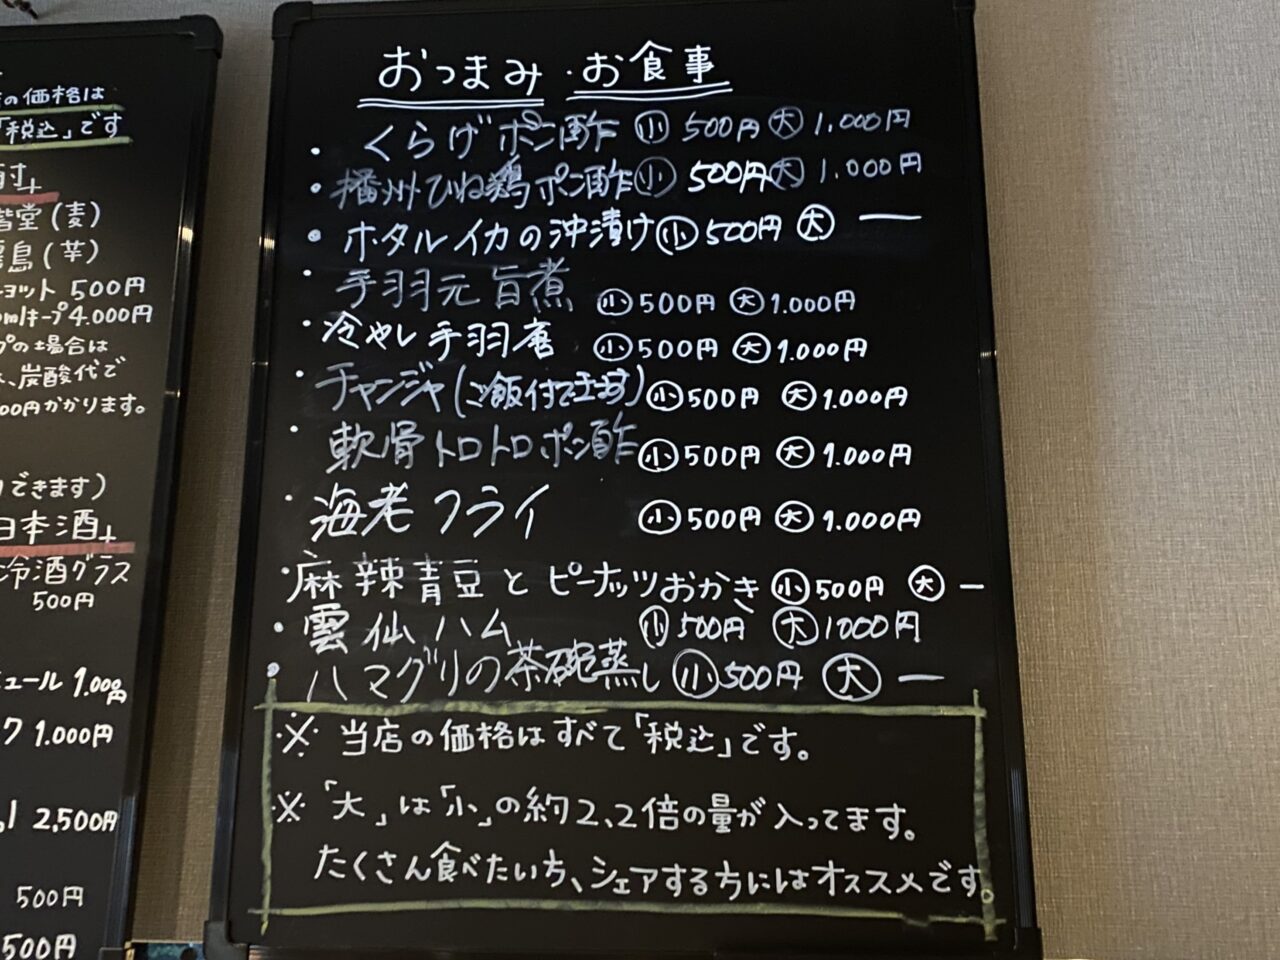 の価格は
「税込」です
階堂(麦)
島(芋)
ョット 500円
mlキープ4.000円
プの場合は
、炭酸代で
00円かかります。
できます)
日本酒
冷酒グラス
500円
ュール 1.000円
ク 1.000円
2,500円
500円
500円
おつまみ・お食事
・くらげポン酢 小 500円 大 1.000円
・播州ひね鶏ポン酢 小 500円 大 1.000円
・ホタルイカの沖漬け 小 500円 大 ―
・手羽元旨煮 小 500円 大 1.000円
・冷やし手羽唐 小 500円 大 1.000円
・チャンジャ(ご飯付できます) 小 500円 大 1.000円
・軟骨トロトロポン酢 小 500円 大 1.000円
・海老フライ 小 500円 大 1.000円
・麻辣青豆とピーナッツおかき 小 500円 大 ―
・雲仙ハム 小 500円 大 1000円
・ハマグリの茶碗蒸し 小 500円 大 ―
※ 当店の価格はすべて「税込」です。
※「大」は「小」の約2、2倍の量が入ってます。
たくさん食べたい方、シェアする方にはオススメです。